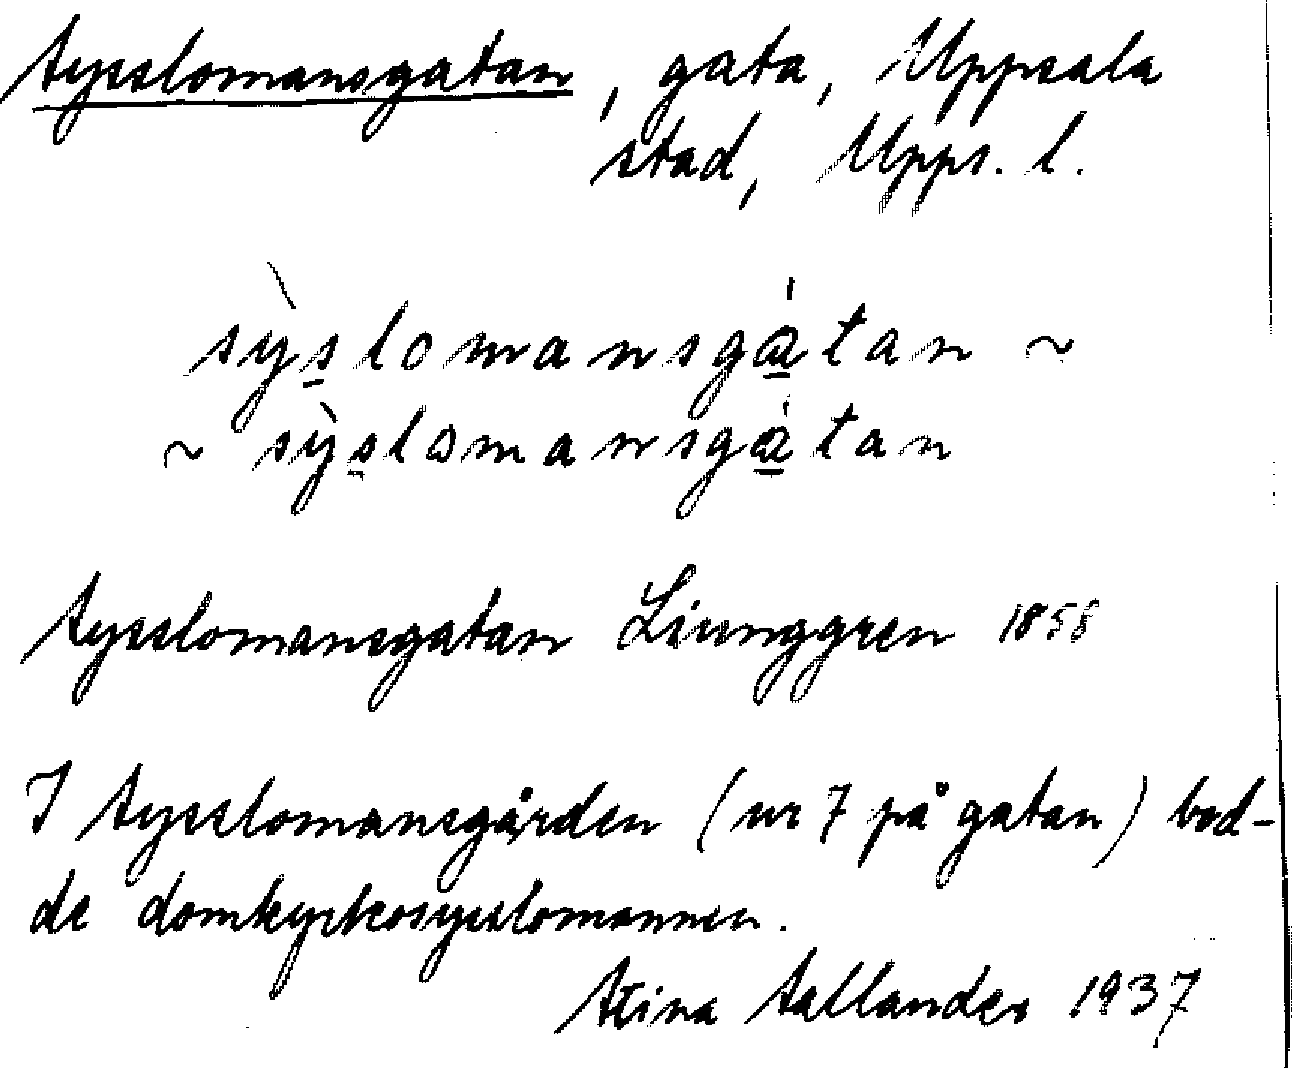 Sysslomansgatan, gata, Uppsala
stad, Upps. l.
sỳslomansgátan ~
~ sỳslomansgátan
Sysslomansgatan Liunggren 1858
I Sysslomansgården (nr 7 på gatan) bod-
de domkyrkosysslomannen.
Stina Sallander 1937